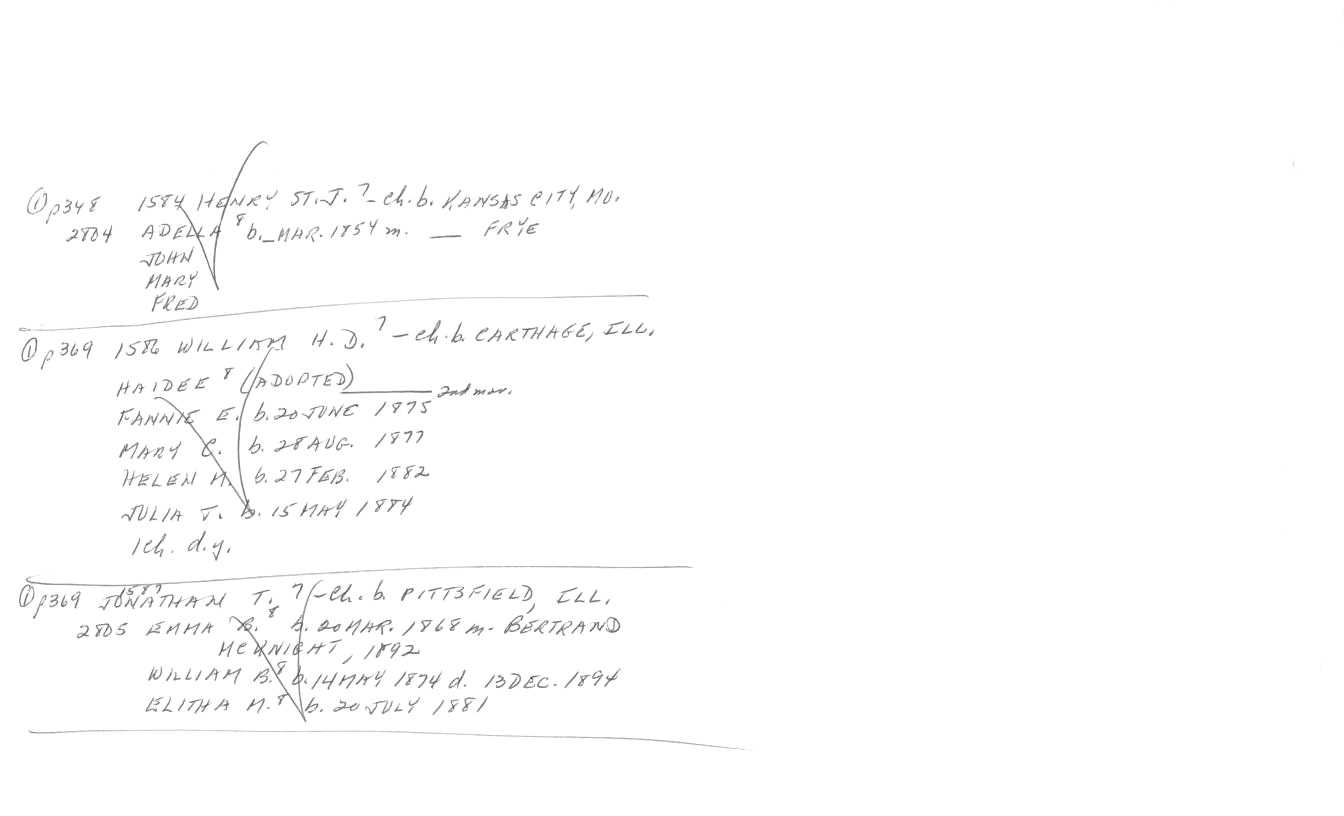 ① p348 1584 HENRY ST. J. 7 - ch. b. KANSAS CITY, MO.
2804 ADELLA 8 b. _ MAR. 1854 m. — FRYE
JOHN
MARY
FRED
① p369 1586 WILLIAM H. D. 7 - ch. b. CARTHAGE, ILL.
HAIDEE 8 (ADOPTED) 2nd mar.
FANNIE E. b. 20 JUNE 1875
MARY C. b. 28 AUG. 1877
HELEN M. b. 27 FEB. 1882
JULIA T. b. 15 MAY 1884
1 ch. d.y.
① p369 1587 JONATHAN T. 7 - ch. b. PITTSFIELD, ILL.
2805 EMMA B. 8 b. 20 MAR. 1868 m. BERTRAND
MCKNIGHT, 1892
WILLIAM B. 8 b. 14 MAY 1874 d. 13 DEC. 1894
ELITHA M. 8 b. 20 JULY 1881